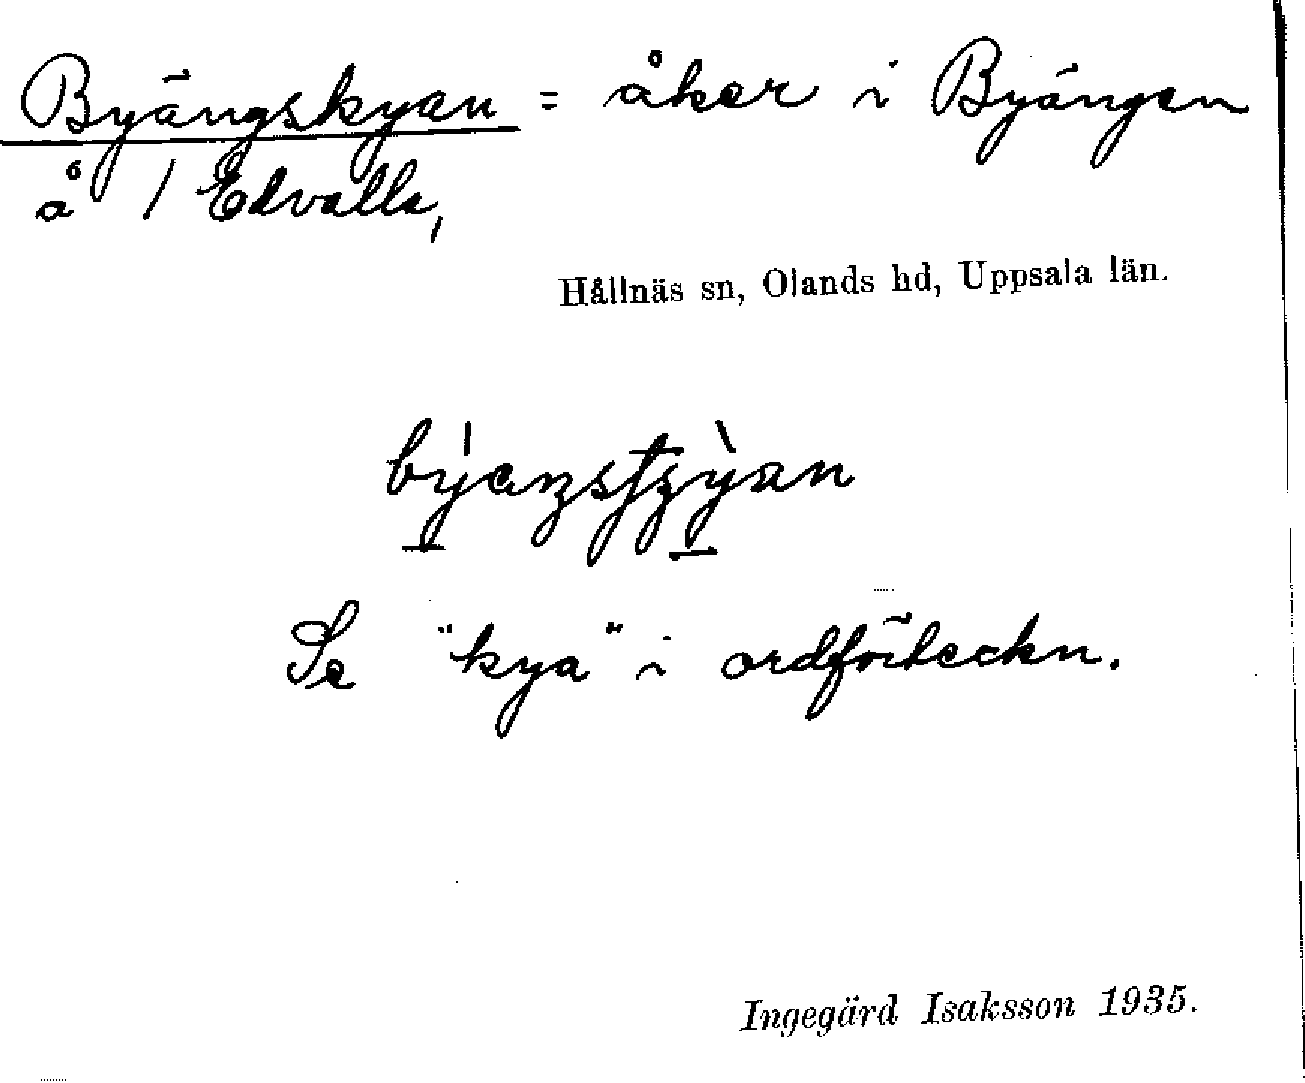 Byängskyan = åker i Byängen
å 1 Edvalla,
Hållnäs sn, Olands hd, Uppsala län.
Se "kya" i ordförteckn.
Ingegärd Isaksson 1935.